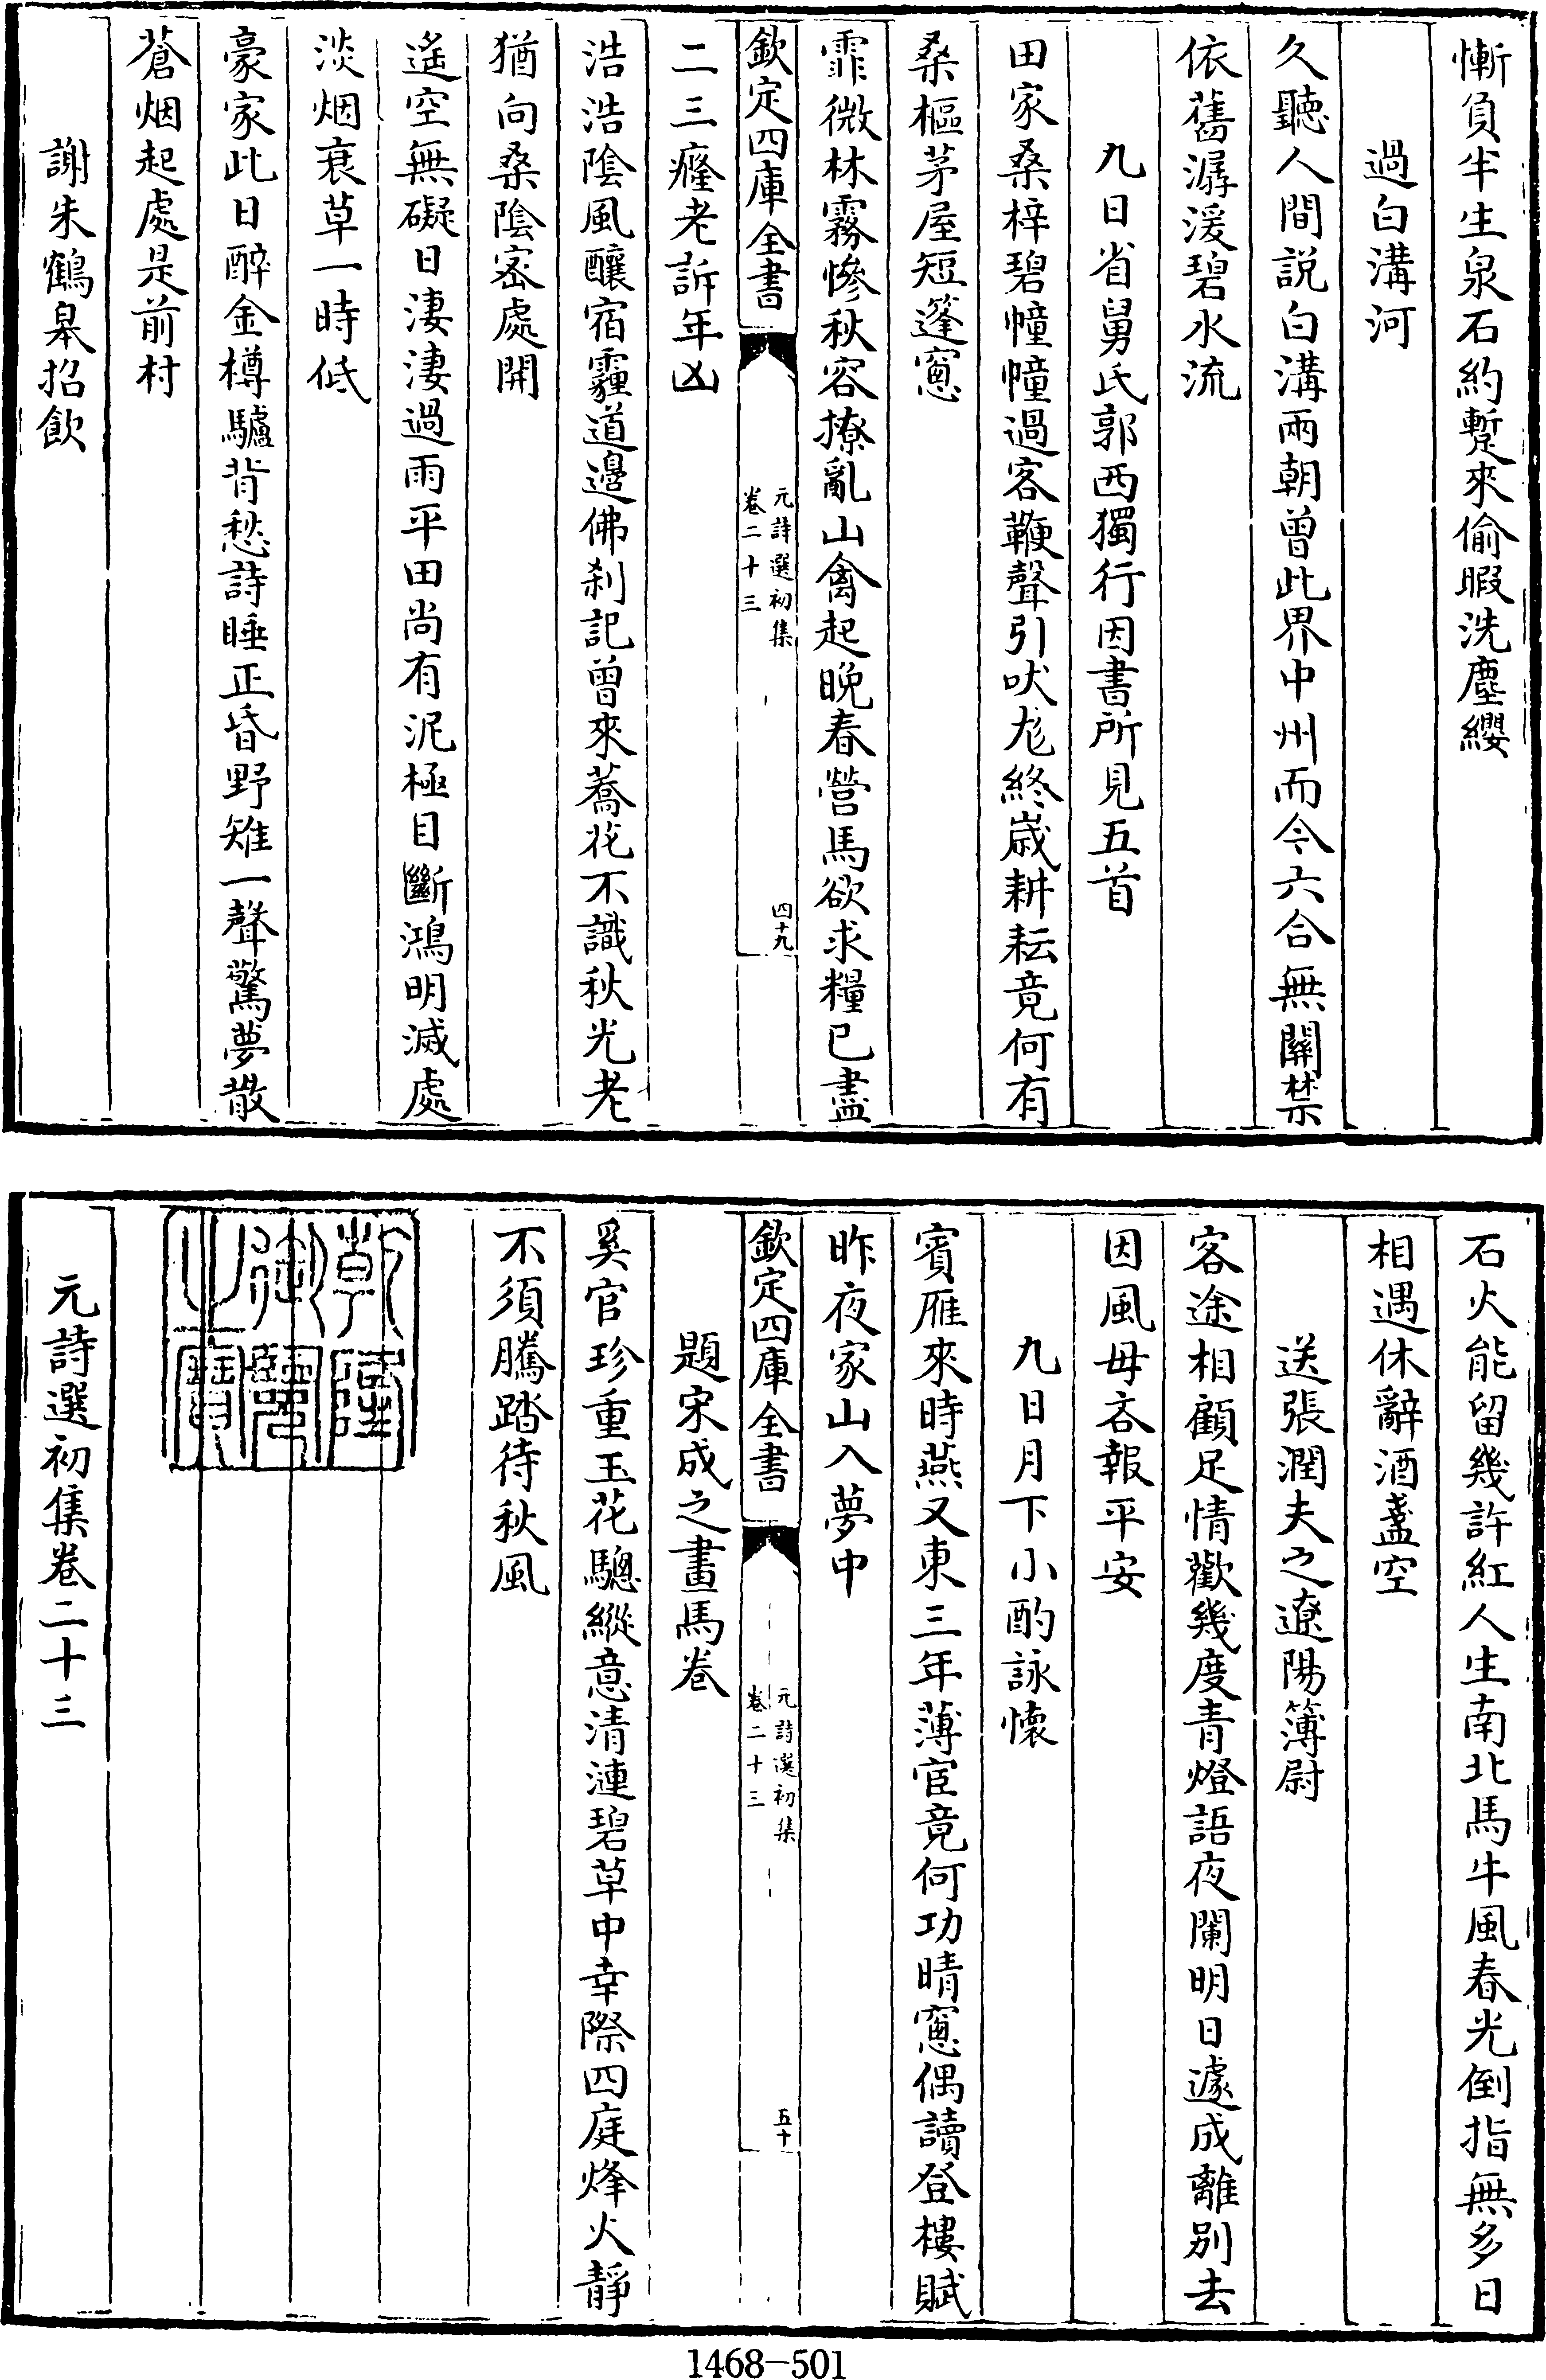 慚負半生泉石約蹔來偷暇洗塵纓
過白溝河
久聽人間説白溝兩朝曾此界中州而今六合無關禁
依舊潺湲碧水流
九日省舅氏郭西獨行因書所見五首
田家桑梓碧幢幢過客鞭聲引吠尨終歳耕耘竟何有
桑樞茅屋短篷窻
霏微林霧慘秋容撩亂山禽起晚春營馬欲求糧已盡
欽定四庫全書
元詩選初集
卷二十三
四十九
二三癃老訴年凶
浩浩陰風釀宿霾道邊佛刹記曾來蕎花不識秋光老
猶向桑陰密處開
遙空無礙日淒淒過雨平田尚有泥極目斷鴻明滅處
淡烟衰草一時低
豪家此日醉金樽驢背愁詩睡正昏野雉一聲驚夢散
蒼烟起處是前村
謝朱鶴皋招飲
石火能留幾許紅人生南北馬牛風春光倒指無多日
相遇休辭酒盞空
送張潤夫之遼陽簿尉
客途相顧足情歡幾度青燈語夜闌明日遽成離别去
因風毋吝報平安
九日月下小酌詠懷
賓雁來時燕又東三年薄宦竟何功晴窻偶讀登樓賦
昨夜家山入夢中
欽定四庫全書
元詩選初集
卷二十三
五十
題宋成之畫馬卷
奚官珍重玉花驄縱意清漣碧草中幸際四庭烽火靜
不須騰踏待秋風
乾隆御覽之寶
元詩選初集卷二十三
1468-501